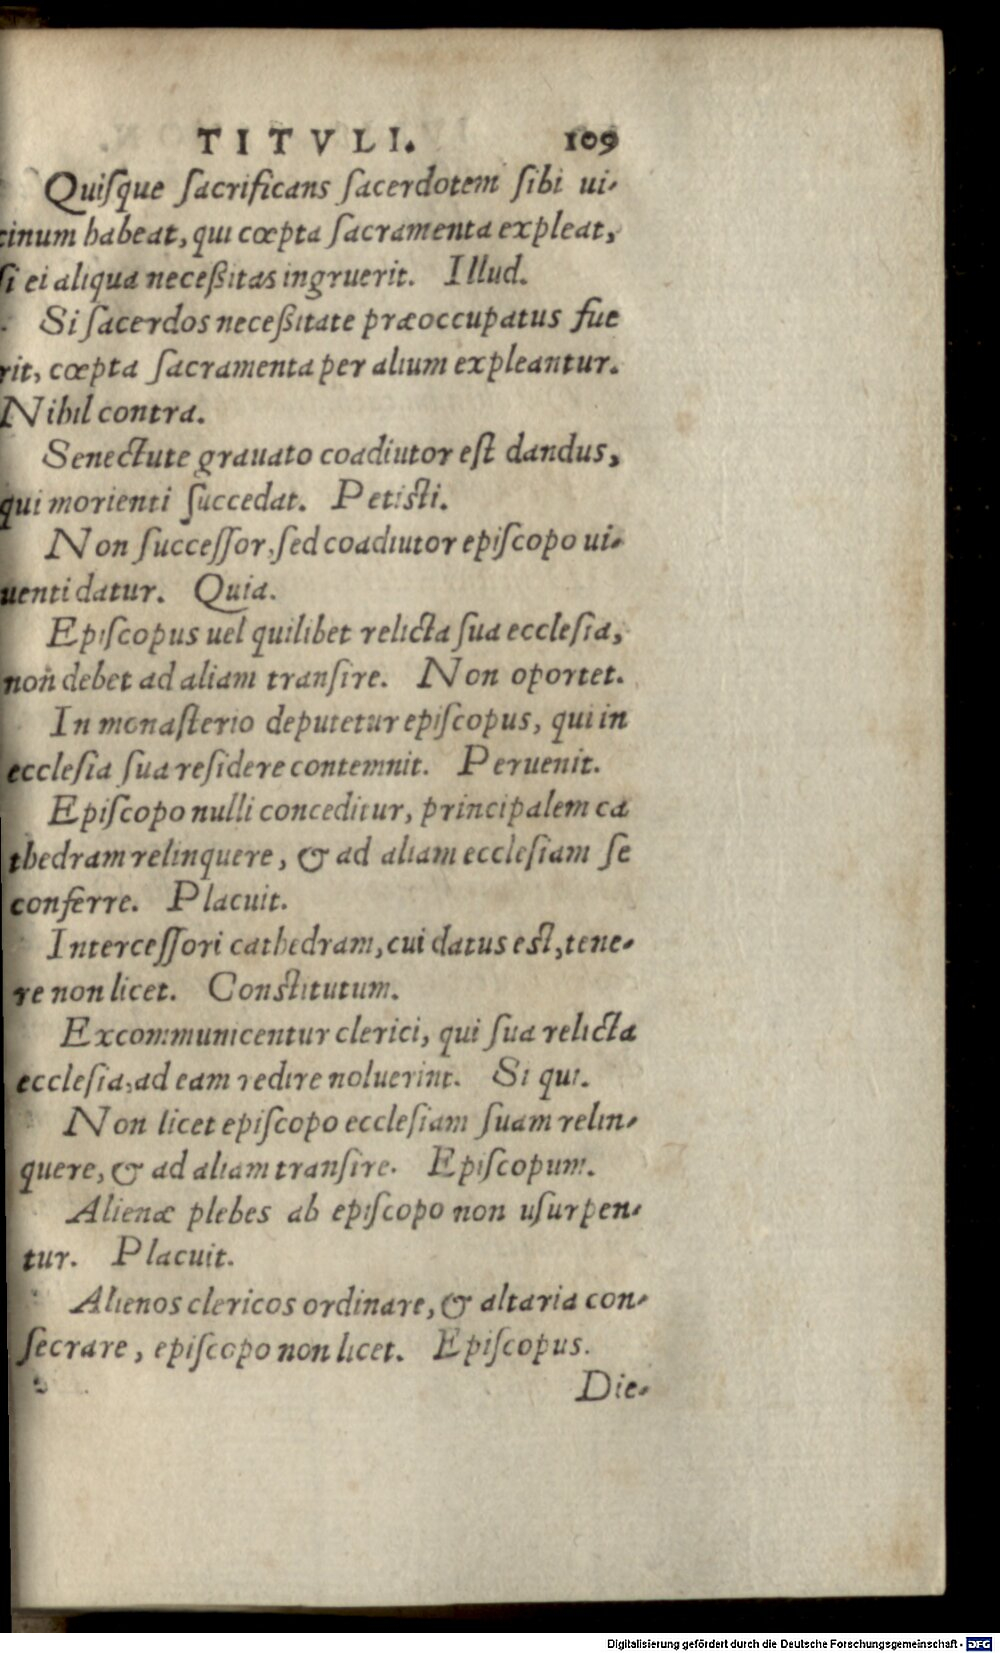 TITVLI. 109
Quiſque ſacrificans ſacerdotem ſibi ui-
cinum habeat, qui cœpta ſacramenta expleat,
ſi ei aliqua neceßitas ingruerit. Illud.
Si ſacerdos neceßitate præoccupatus fue
rit, cœpta ſacramenta per alium expleantur.
Nihil contra.
Senectute grauato coadiutor eſt dandus,
qui morienti ſuccedat. Petiſti.
Non ſucceſſor, ſed coadiutor epiſcopo ui-
uenti datur. Quia.
Epiſcopus uel quilibet relicta ſua eccleſia,
non debet ad aliam tranſire. Non oportet.
In monaſterio deputetur epiſcopus, qui in
eccleſia ſua reſidere contemnit. Peruenit.
Epiſcopo nulli conceditur, principalem ca
thedram relinquere, & ad aliam eccleſiam ſe
conferre. Placuit.
Interceſſori cathedram, cui datus eſt, tene-
re non licet. Conſtitutum.
Excommunicentur clerici, qui ſua relicta
eccleſia, ad eam redire noluerint. Si qui.
Non licet epiſcopo eccleſiam ſuam relin-
quere, & ad aliam tranſire. Epiſcopum.
Alienæ plebes ab epiſcopo non uſurpen-
tur. Placuit.
Alienos clericos ordinare, & altaria con-
ſecrare, epiſcopo non licet. Epiſcopus.
Die-
Digitalisierung gefördert durch die Deutsche Forschungsgemeinschaft - DFG